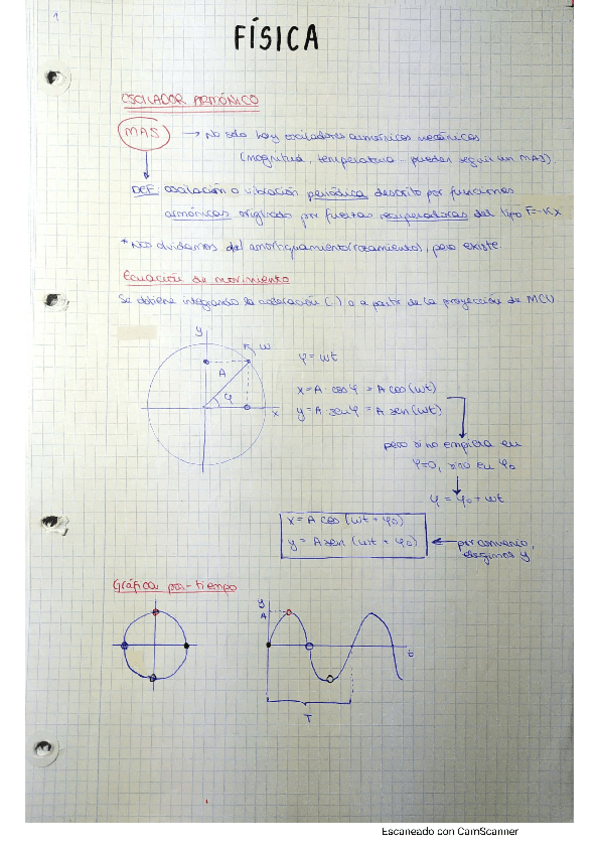 1
FÍSICA
OSCILADOR ARMÓNICO
MAS → No solo hay osciladores armónicos mecánicos
(magnitud, temperatura - pueden seguir un MAS)
DEF: oscilación o vibración periódica descrito por funciones
armónicas originado por fuerzas recuperadoras del tipo F=-Kx
* Nos olvidamos del amortiguamiento (rozamiento), pero existe
Ecuación de movimiento
Se obtiene integrando la aceleración ( ) o a partir de la proyección de MCU
y
ω
A
φ
x
φ = ωt
x = A · cos φ = A cos (ωt)
y = A · sen φ = A sen (ωt)
pero si no empieza en
φ=0, sino en φ₀
φ = φ₀ + ωt
x = A cos (ωt + φ₀)
y = A sen (ωt + φ₀)
← por convenio,
elegimos y
Gráfica pos-tiempo
y
A
t
T
Escaneado con CamScanner